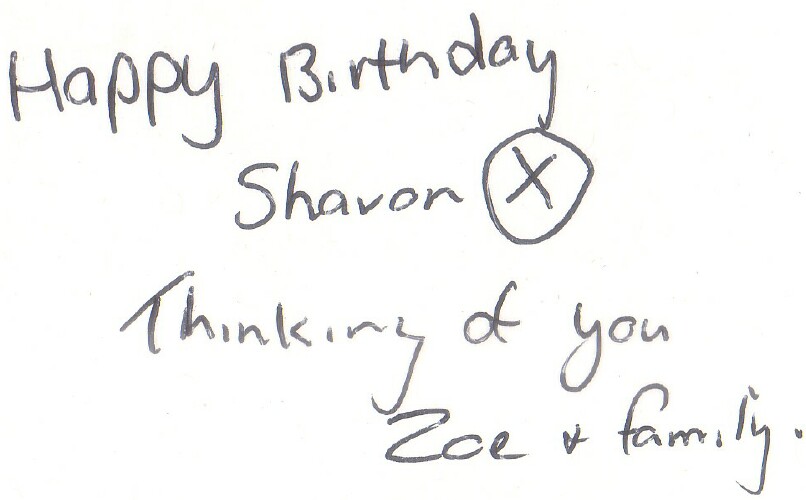 Happy Birthday
Sharon X
Thinking of you
Zoe & family.